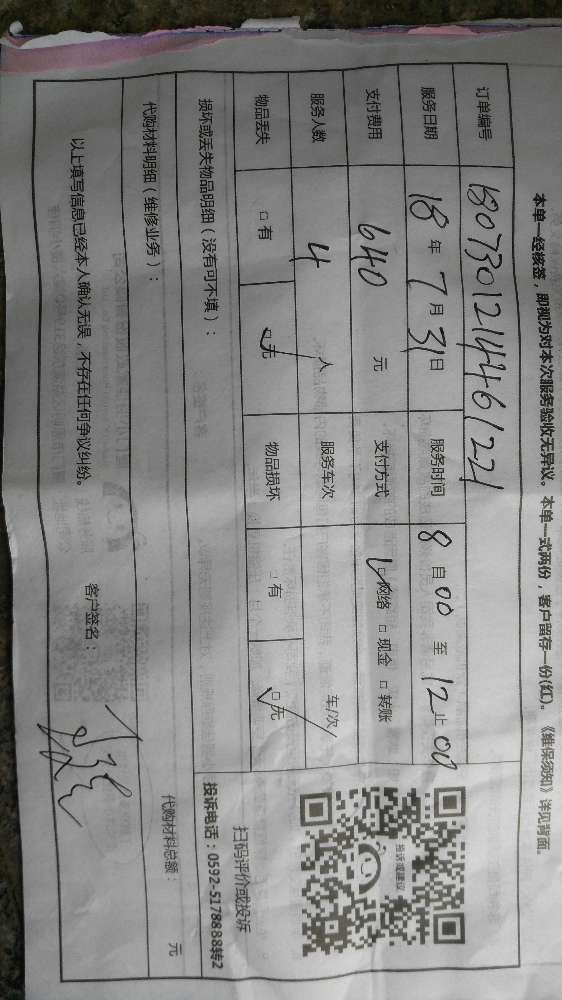 本单一经核签，即视为对本次服务验收无异议。本单一式两份，客户留存一份(红)。《维保须知》详见背面。
订单编号 180730121446122
服务日期 18 年 7 月 31 日 服务时间 8 自 00 至 12 止 00
支付费用 640 元 支付方式 ☑网络 □现金 □转账
服务人数 4 人 服务车次 车/次
物品丢失 □有 ☑无 物品损坏 □有 ☑无
投诉或建议
扫码评价或投诉
投诉电话：0592-5178888转2
损坏或丢失物品明细（没有可不填）：
代购材料明细（维修业务）： 代购材料总额： 元
以上填写信息已经本人确认无误，不存在任何争议纠纷。 客户签名：